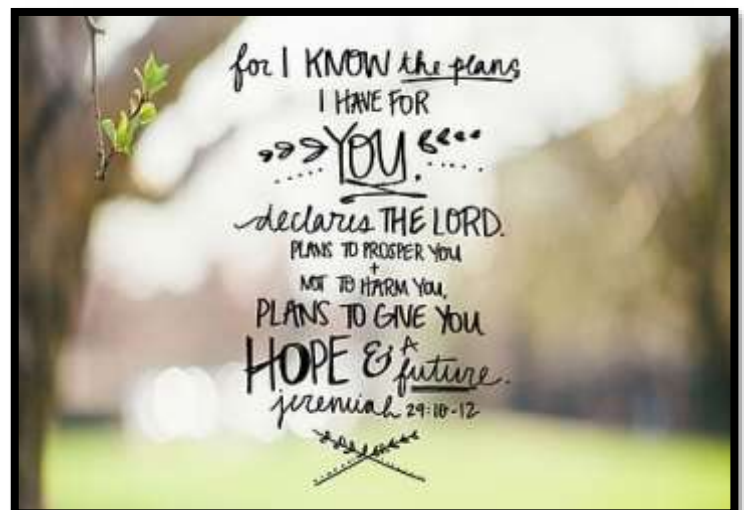 for I KNOW the plans
I HAVE FOR
YOU.
declares THE LORD.
PLANS TO PROSPER YOU
+
NOT TO HARM YOU,
PLANS TO GIVE YOU
HOPE & A future.
jeremiah 29:10-12